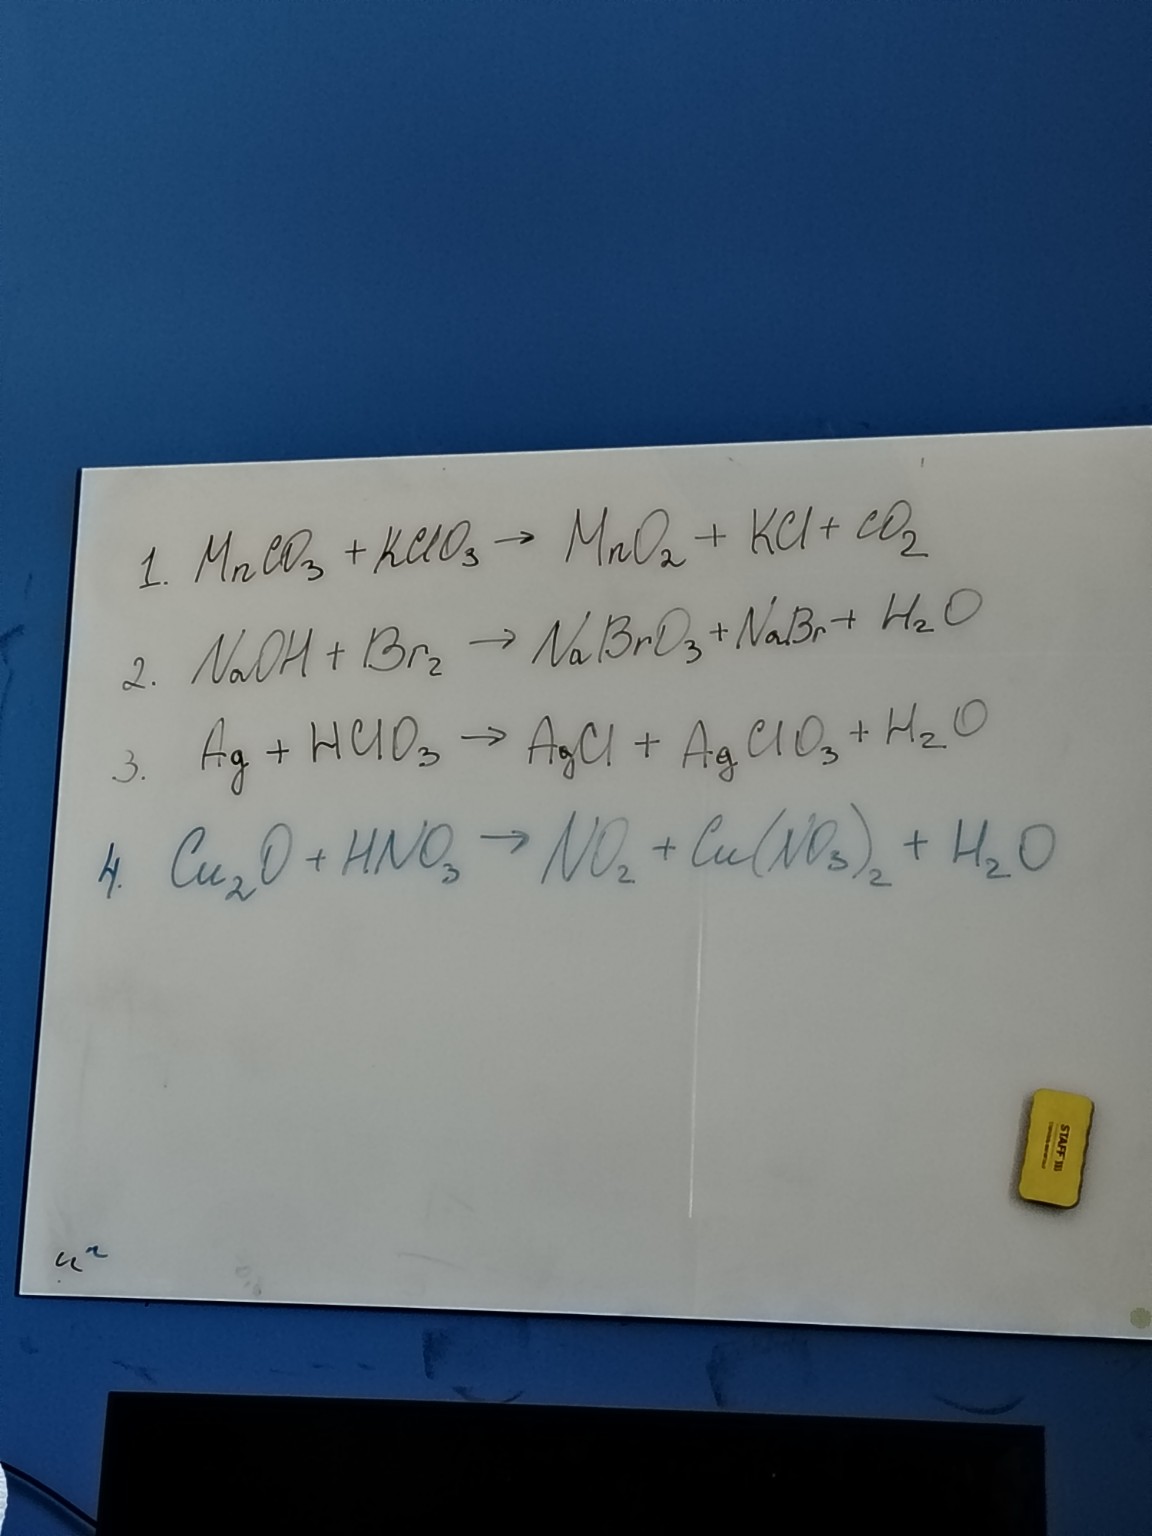 1. MnCO₃ + KClO₃ → MnO₂ + KCl + CO₂
2. NaOH + Br₂ → NaBrO₃ + NaBr + H₂O
3. Ag + HClO₃ → AgCl + AgClO₃ + H₂O
4. Cu₂O + HNO₃ → NO₂ + Cu(NO₃)₂ + H₂O
STAFF